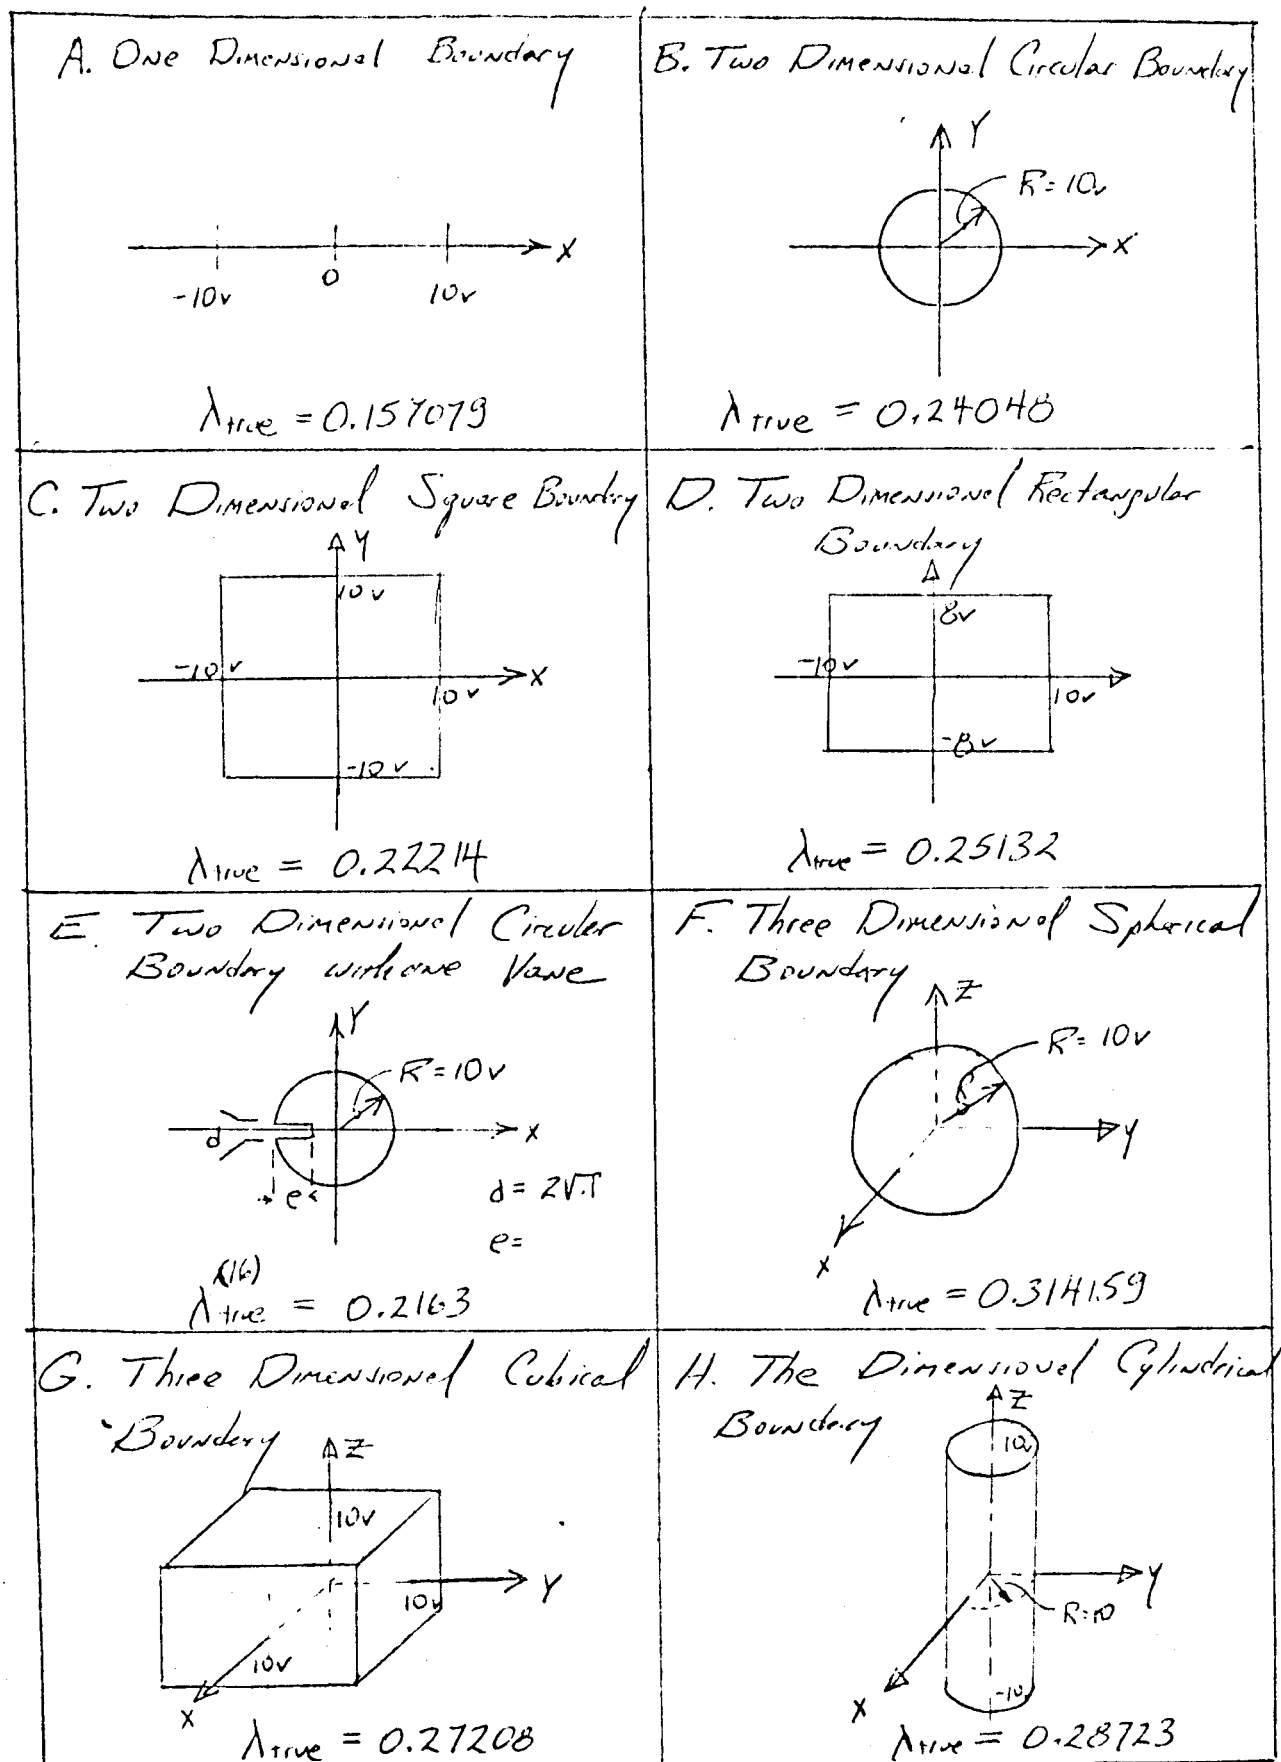 A. One Dimensional Boundary
X
-10v
0
10v
λtrue = 0.157079
B. Two Dimensional Circular Boundary
Y
R=10v
X
λtrue = 0.24048
C. Two Dimensional Square Boundry
Y
10v
-10v
X
10v
-10v
λtrue = 0.22214
D. Two Dimensional Rectangular
Boundary
8v
-10v
10v
-8v
λtrue = 0.25132
E. Two Dimensional Circular
Boundry with one Vane
Y
R=10v
X
d
e
d=
e=
(16)
λtrue = 0.2163
F. Three Dimensional Spherical
Boundary
Z
R=10v
Y
X
λtrue = 0.314159
G. Three Dimensional Cubical
Boundery
Z
10v
Y
10v
10v
X
λtrue = 0.27208
H. The Dimensionel Cylindrical
Boundery
Z
10v
Y
R=10
X
-10v
λtrue = 0.28723